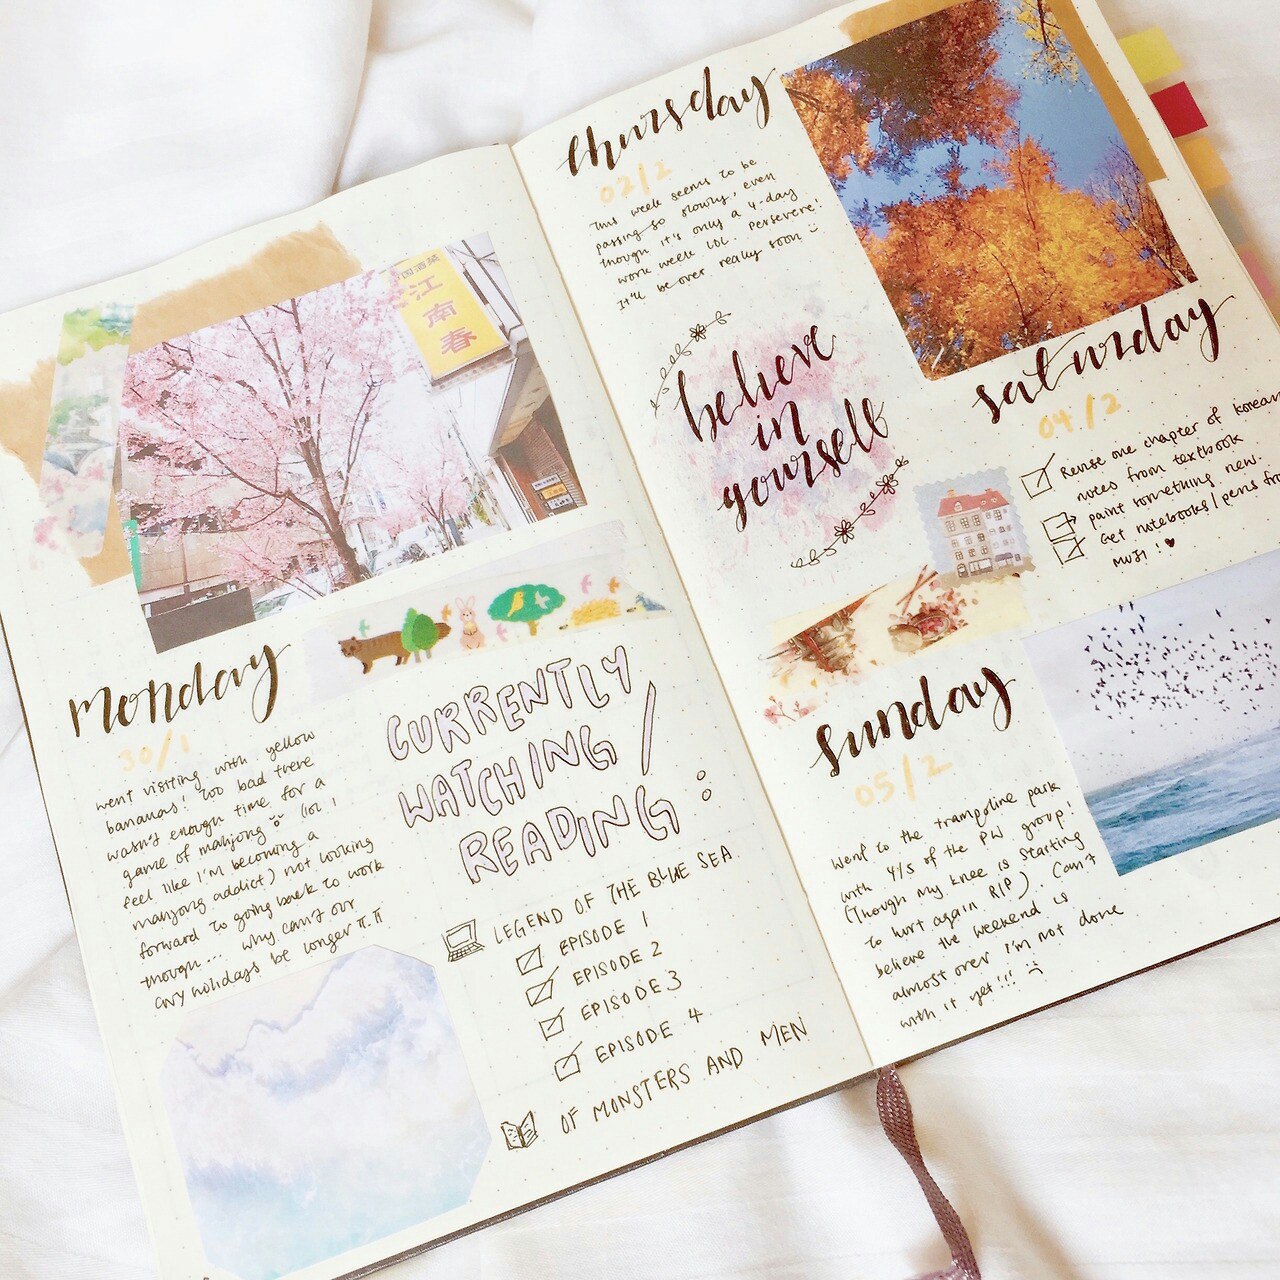 中国酒菜
江
南
春
monday
30/1
went visiting with yellow
bananas! too bad there
wasn't enough time for a
game of mahjong (lol I
feel like I'm becoming a
mahjong addict) not looking
forward to going back to work
though... why can't our
cny holidays be longer π.π
CURRENTLY
WATCHING /
READING:
LEGEND OF THE BLUE SEA
EPISODE 1
EPISODE 2
EPISODE 3
EPISODE 4
OF MONSTERS AND MEN
thursday
02/2
This week seems to be
passing so slowly, even
though it's only a 4-day
work week LOL. persevere!
It'll be over really soon
believe
in
yourself
saturday
04/2
Revise one chapter of korean
notes from textbook
paint something new.
Get notebooks/pens fro
MUJI! ♥
sunday
05/2
went to the trampoline park
with 4/5 of the PW group!
(Though my knee is starting
to hurt again RIP). Can't
believe the weekend is
almost over I'm not done
with it yet!!! :(